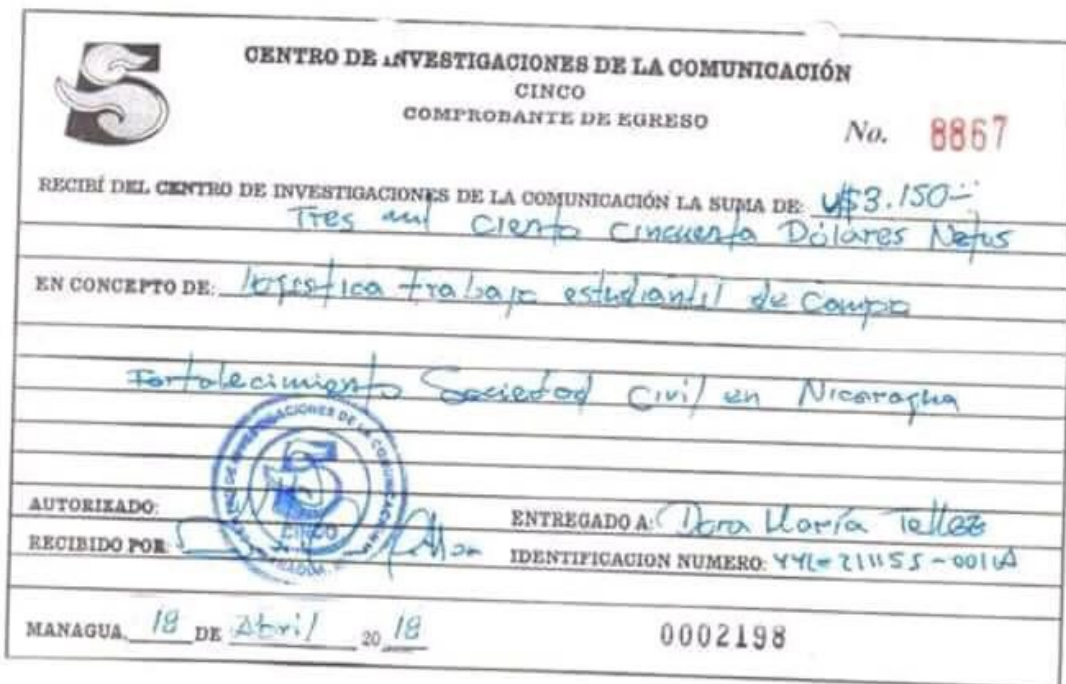 CENTRO DE INVESTIGACIONES DE LA COMUNICACIÓN
CINCO
COMPROBANTE DE EGRESO
No. 8867
RECIBÍ DEL CENTRO DE INVESTIGACIONES DE LA COMUNICACIÓN LA SUMA DE: U$3.150
Tres mil Ciento Cincuenta Dólares Netos
EN CONCEPTO DE: logística trabajo estudiantil de Campo
Fortalecimiento Sociedad Civil en Nicaragua
AUTORIZADO:
CINCO
ENTREGADO A: Dora María Tellez
RECIBIDO POR
IDENTIFICACION NUMERO: 441-211155-0011A
MANAGUA, 18 DE Abril 20 18
0002198